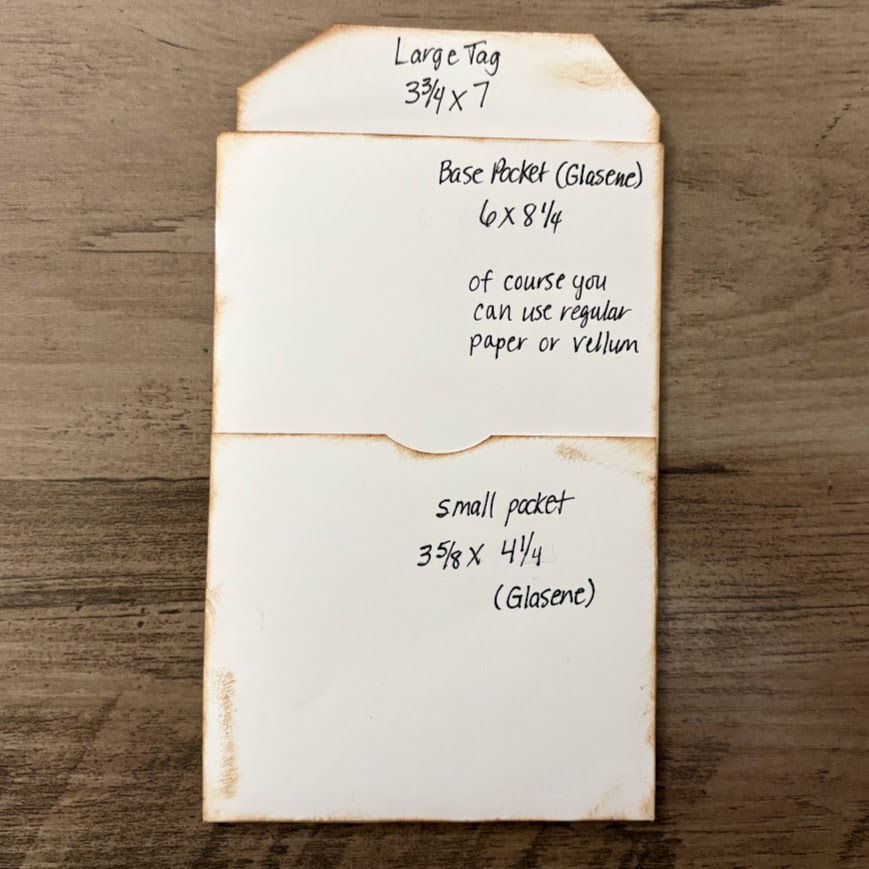 Large Tag
3 3/4 x 7
Base Pocket (Glasene)
6 x 8 1/4
of course you
can use regular
paper or vellum
small pocket
3 5/8 x 4 1/4
(Glasene)